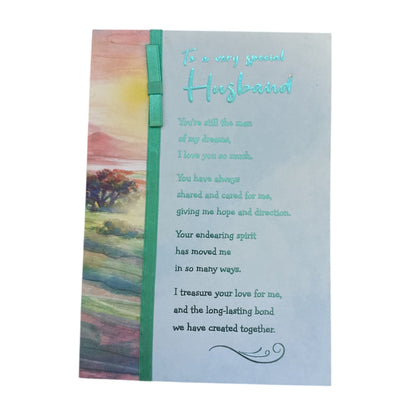 To a very special
Husband
You're still the man
of my dreams,
I love you so much.
You have always
shared and cared for me,
giving me hope and direction.
Your endearing spirit
has moved me
in so many ways.
I treasure your love for me,
and the long-lasting bond
we have created together.